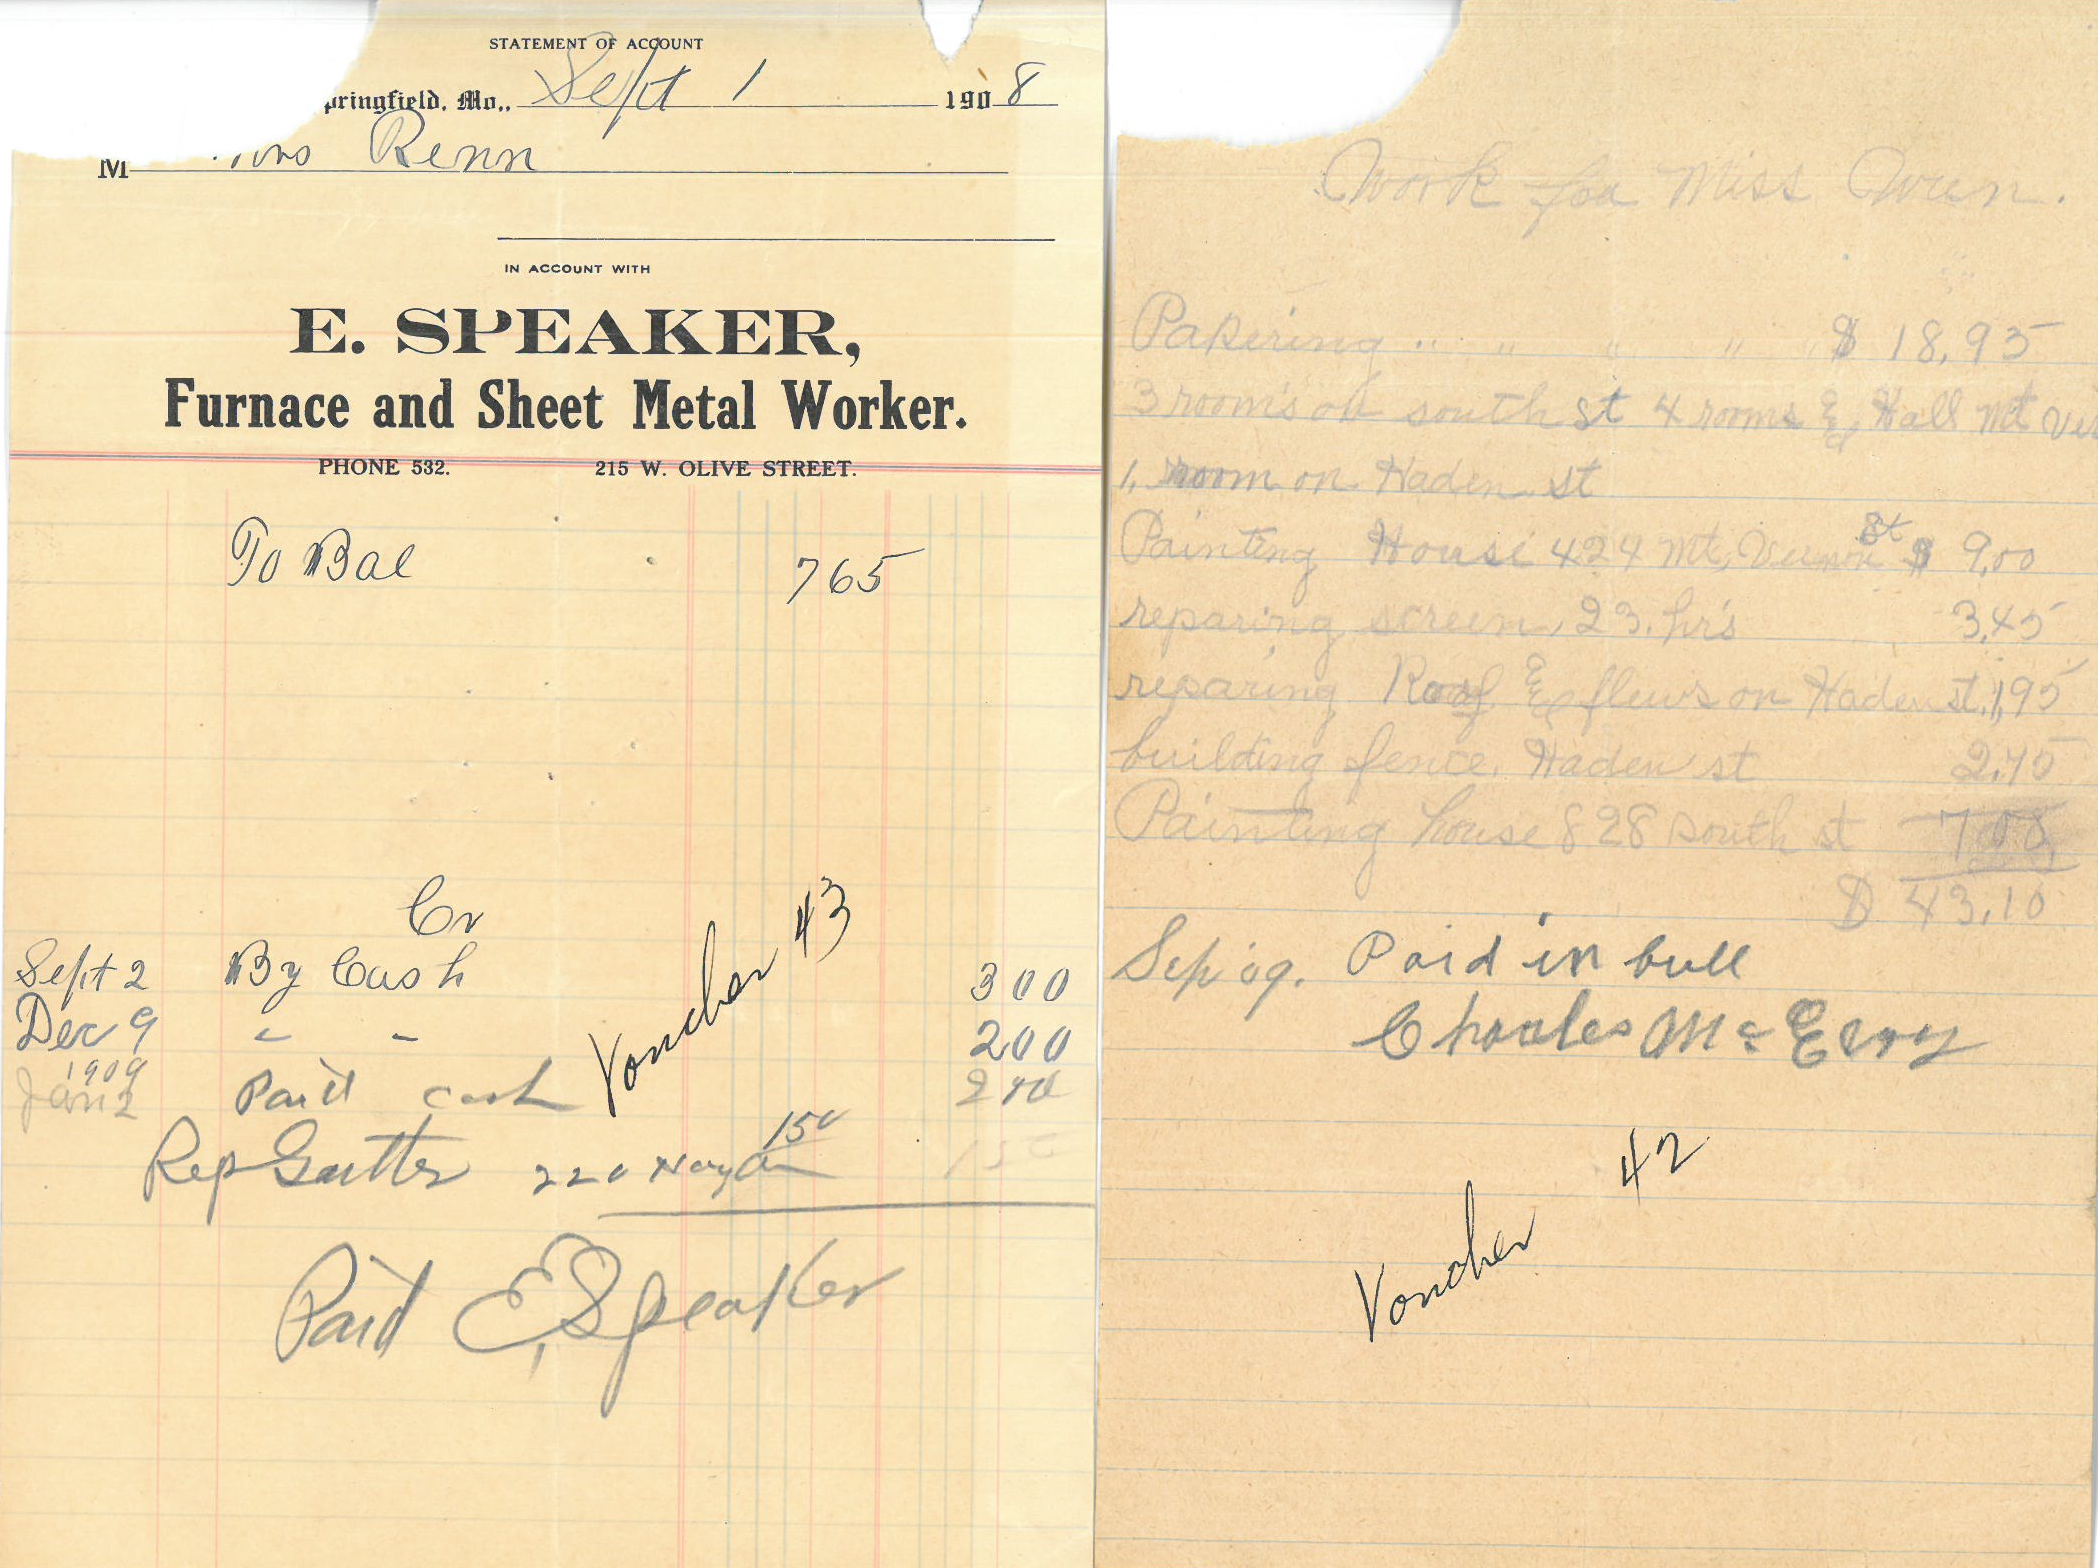 STATEMENT OF ACCOUNT
pringfield, Mo., Sept 1 1908
M Renn
IN ACCOUNT WITH
E. SPEAKER,
Furnace and Sheet Metal Worker.
PHONE 532. 215 W. OLIVE STREET.
To Bal 765
Cr
Sept 2 By Cash 300
Dec 9 " " 200
1909
Jan 2 Paid cash
Voucher 43
Rep Gutter 220 150 150
Paid E, Speaker
Work for Miss Wren.
Papering " " " " " $ 18,95
3 rooms on south st 4 rooms & Hall Mt Ver
1, room on Haden st
Painting House 424 Mt, Vernon St $ 9,00
reparing screen, 23. hrs 3,45
reparing Roof & flews on Haden st. 1,95
building fence, Haden st 2,75
Painting house 828 south st 7 00
$ 43,10
Sep' 09. Paid in bull
Charles Mc Elroy
Voucher 42